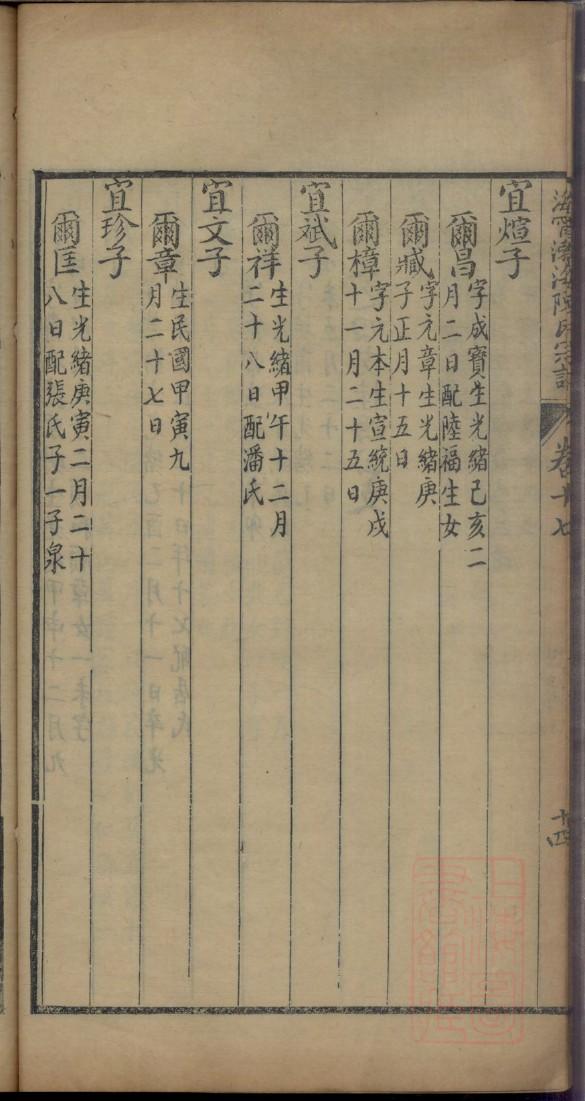 海寧渤海陳氏宗譜 卷十七 十四
宜煊子
爾昌 字成寶生光緒己亥二
月二日配陸福生女
爾臧 字元章生光緒庚
子正月十五日
爾樟 字元本生宣統庚戌
十一月二十五日
宜斌子
爾祥 生光緒甲午十二月
二十八日配潘氏
宜文子
爾章 生民國甲寅九
月二十七日
宜珍子
爾匡 生光緒庚寅二月二十
八日配張氏子一子泉